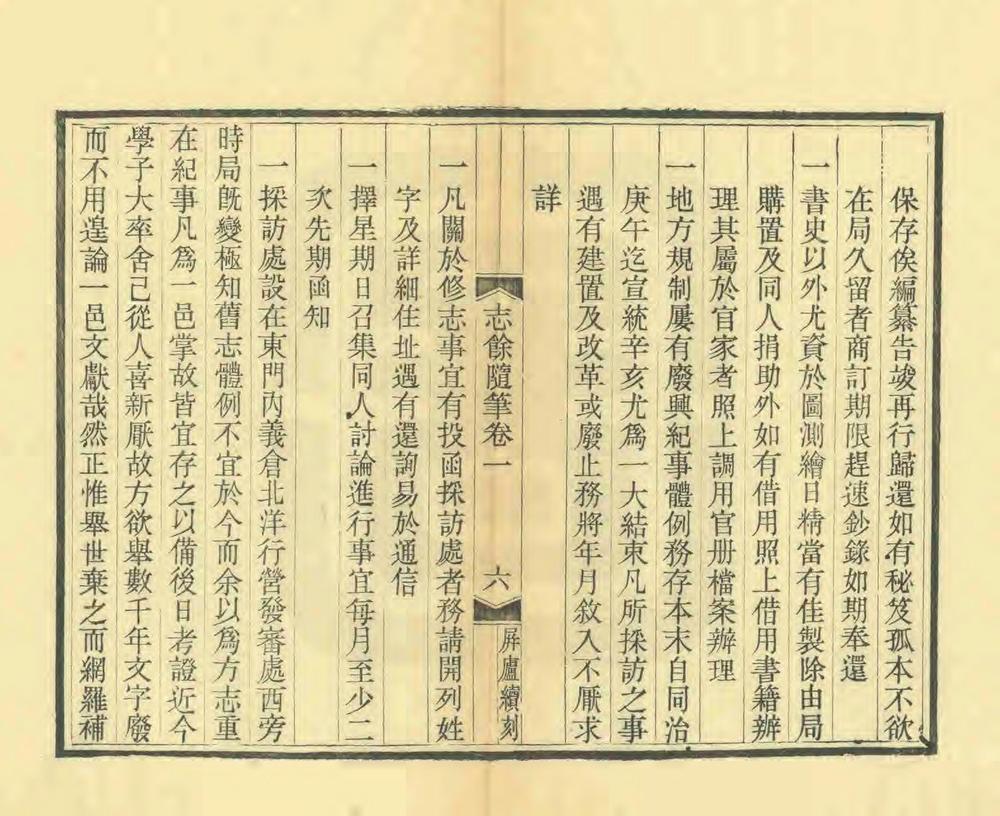 保存俟編纂告竣再行歸還如有秘笈孤本不欲
在局久留者商訂期限趕速鈔錄如期奉還
一書史以外尤資於圖測繪日精當有佳製除由局
購置及同人捐助外如有借用照上借用書籍辦
理其屬於官家者照上調用官册檔案辦理
一地方規制屢有廢興紀事體例務存本末自同治
庚午迄宣統辛亥尤爲一大結束凡所採訪之事
遇有建置及改革或廢止務將年月敘入不厭求
詳
志餘隨筆卷一 六 屏廬續刻
一凡關於修志事宜有投函採訪處者務請開列姓
字及詳細住址遇有還詢易於通信
一擇星期日召集同人討論進行事宜每月至少二
次先期函知
一採訪處設在東門內義倉北洋行營發審處西旁
時局旣變極知舊志體例不宜於今而余以爲方志重
在紀事凡爲一邑掌故皆宜存之以備後日考證近今
學子大率舍己從人喜新厭故方欲舉數千年文字廢
而不用遑論一邑文獻哉然正惟舉世棄之而網羅補